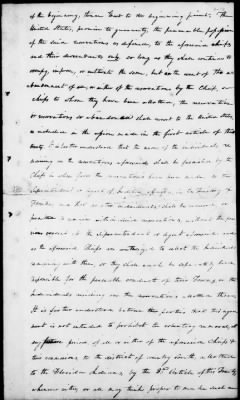 of the beginning, thence East to the beginning point. The
United States, promise to guaranty, the peaceable possession
of the said reservations as defined, to the aforesaid chiefs
and their descendants only so long as they shall continue to
occupy, improve, or cultivate the same, but in the event of the
abandonment of all, or either of the reservations by the Chief, or
chiefs to whom they have been allotted, the reservation
or reservations so abandoned shall revert to the United States,
as included in the cession made in the first article of this
treaty. It is further understood that the names of the individuals re-
maining on the reservations aforesaid shall be furnished by the
Chiefs in whose favor the reservations have been made, to the
Superintendent or agent of Indian affairs, in the territory of
Florida, and that no other individuals shall be received or
permitted to remain within said reservations, without the pre-
vious consent of the Superintendent or Agent aforesaid; and
as the aforesaid Chiefs are authorized to select the individuals
remaining with them, so they shall each be separately held
responsible for the peaceable conduct of their Towns, or the
individuals residing on the reservations allotted them.
It is further understood between the parties that this agree-
ment is not intended to prohibit the voluntary removal, at
any future period, of all or either of the aforesaid Chiefs &
their connexions to the district of country South, allotted
to the Florida Indians, by the 2nd Article of this Treaty,
whenever either, or all may think proper to make such an